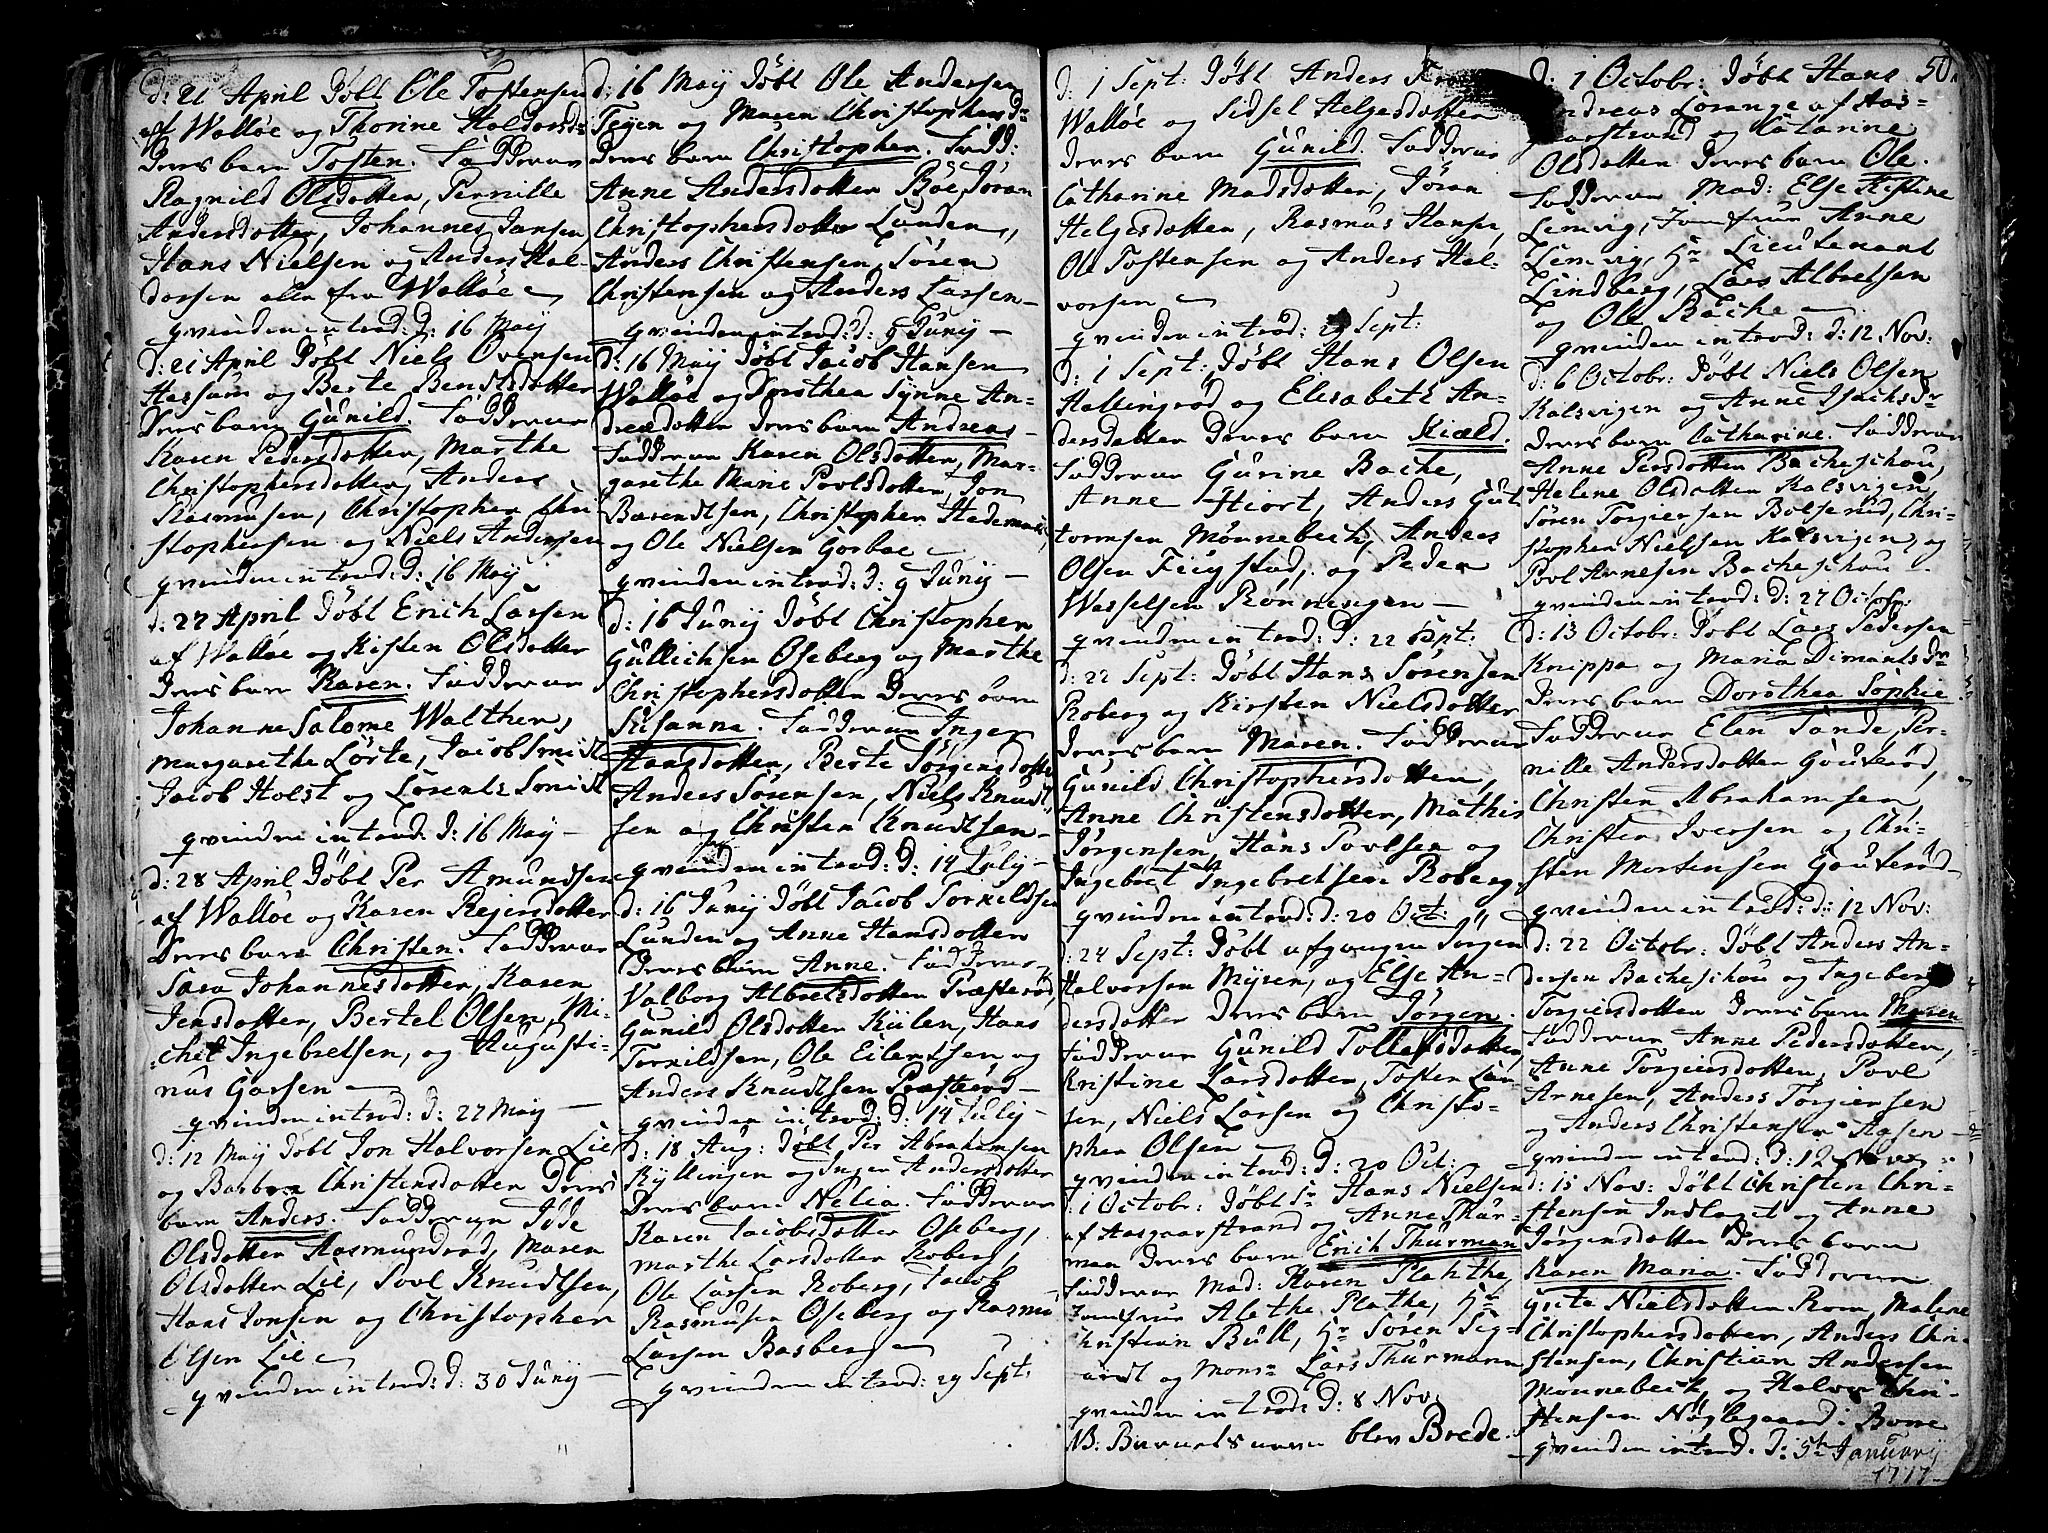 d: 21 April Døbt Ole Tostensen
af Walløe og Thorine Haldorsd:
Deres barn Tosten. Fadderne
Ragnild Olsdotter, Pernille
Andersdotter, Johannes Jansen,
Hans Nielsen og Anders Hal-
dorsen alle fra Walløe
qvinden introd: d: 16 May
d: 21 April Døbt Niels Ovensen
Hassum og Berte Bendtsdotter
Deres barn Gunild. Fadderne
Karen Pedersdotter, Marthe
Christophersdotter, Anders
Rasmusen, Christopher Chri
stophersen og Niels Andersen
qvinden introd: d: 16 May
d: 27 April Døbt Erich Larsen
af Walløe og Kisten Olsdotter
Deres barn Karen. Fadderne
Johanne Salome Walther,
Margarethe Lørte, Jacob Smidt
Jacob Holst og Lorentz Smidt
qvinden introd: d: 16 May
d: 28 April Døbt Per Amundsen
af Walløe og Karen Rejersdotter
Deres barn Christen. Fadderne
Sara Johannesdotter, Karen
Jensdotter, Bertel Olsen, Mi-
chel Ingebretsen, og Augusti-
nus Garsen
qvinden introd: d: 27 May
d: 12 May Døbt Jon Halvorsen Lie
og Barbra Christensdotter Deres
barn Anders. Fadderne Jøde
Olsdotter Aasmundrød, Maren
Olsdotter Lie, Povl Knudtsen,
Hans Jonsen og Christopher
Olsen Lie
qvinden introd: d: 30 Juny
d: 16 May Døbt Ole Andersen
Tejen og Maren Christophersd:
Deres barn Christopher. Fadd:
Anne Andersdotter Bøe, Jøran
Christophersdotter Lunden,
Anders Christensen, Søren
Christensen og Anders Larsen
qvinden introd: d: 9 Juny
d: 16 May Døbt Jacob Hansen
Walløe og Dorthea Synne An-
dreædotter Deres barn Andreas
Fadderne Karen Olsdotter, Mar-
garethe Marie Povlsdotter, Jon
Barendtsen, Christopher Hedemark,
og Ole Nielsen Gorboe
qvinden introd: d: 9 Juny
d: 16 Juny Døbt Christopher
Gullichsen Oseberg og Marthe
Christophersdotter Deres barn
Susanna. Fadderne Inger
Hansdotter, Berte Jørgensdotter
Anders Sørensen, Niels Knudt
sen og Christen Knudtsen
qvinden introd: d: 14 July
d: 16 Juny Døbt Jacob Torkildsen
Lunden og Anne Hansdotter
Deres barn Anne. Fadderne
Valborg Albretsdotter Præsterød,
Gunild Olsdotter Kulen, Hans
Torkildsen, Ole Eilertsen og
Anders Knudtsen Præsterød
qvinden introd: d: 14 July
d: 18 Aug: Døbt Per Abrahamsen
Kyllingen og Inger Andersdotter
Deres barn Nelia. Fadderne
Karen Jacobsdotter Oseberg,
Marthe Larsdotter Roberg,
Ole Larsen Roberg, Jacob
Rasmusen Oseberg og Rasmus
Larsen Basberg
qvinden introd: 29 Sept:
d: 1 Sept: Døbt Anders
Walløe og Sidsel Helgesdotter
Deres barn Gunild. Fadderne
Catharine Madsdotter, Jøran
Helgesdotter, Rasmus Hansen,
Ole Tostensen og Anders Hal-
vorsen
qvinden introd: 29 Sept:
d: 1 Sept: Døbt Hans Olsen
Hallingrød og Elisabeth An-
dersdotter Deres barn Kield.
Fadderne Gurine Bache,
Anne Hiort, Anders Gut
tormsen Mønnebech, Anders
Olsen Feigstad, og Peder
Wasselsen Rønningen
qvinden introd: d: 22 Sept:
d: 22 Sept: Døbt Hans Sørensen
Roberg og Kirsten Nielsdotter
Deres barn Maren. Fadderne
Gunild Christophersdotter,
Anne Christensdotter, Mathis
Jørgensen, Hans Povlsen og
Ingebret Ingebretsen Roberg
qvinden introd: d: 20 Oct:
d: 24 Sept: Døbt afgangen Jørgen
Halvorsen Myren, og Else An-
dersdotter Deres barn Jørgen.
Fadderne Gunild Tollefsdotter,
Kristine Larsdotter, Tosten Lar-
sen, Niels Larsen og Christo-
pher Olsen
qvinden introd: d: 20 Oct:
d: 1 Octobr: Døbt Sr Hans Nielsen
af Aasgaarstrand og Anne Thur-
man Deres barn Erich Thurman
Fadderne Mad: Karen Plahthe,
Jomfrue Alethe Plathe, Hr
Christian Bull, Hr Søren Sig-
vardt og Monsr Lars Thurmann
qvinden introd: d: 8 Nov:
NB: Barnets navn blev Brede.
50.
d: 1 Octobr: Døbt Hans
Andreas Lorange af Aas-
gaarstrand og Catarine
Olsdotter Deres barn Ole.
Fadderne Mad: Else Kistine
Lemvig, Jomfrue Anne
Lemvig, Hr Lieutenant
Lindberg, Lars Albretsen
og Ole Bache
qvinden introd: d: 12 Nov:
d: 6 Octobr: Døbt Niels Olsen
Kalsvigen og Anne Isachsdr
Deres barn Catharine. Fadderne
Anne Persdotter Bacheschou,
Helene Olsdotter Kalsvigen,
Søren Torgiersen Bolserud, Chri-
stopher Nielsen Kalsvigen, og
Povl Arnesen Bacheschou
qvinden introd: d: 27 Octobr:
d: 13 Octobr: Døbt Lars Pedersen
Knippa og Maria Dimantsdr
Deres barn Dorothea Sophie
Fadderne Elen Sande, Per-
nille Andersdotter Gouterød,
Christen Abrahamsen,
Christen Iversen og Chri-
sten Mortensen Gouterød
qvinden introd: d: 12 Nov:
d: 22 Octobr: Døbt Anders An-
dersen Bacheschou og Ingeborg
Torgiersdotter Deres barn Maren
Fadderne Anne Pedersdotter,
Anne Torgiersdotter, Povl
Arnesen, Anders Torgiersen
og Anders Christensen Aasen
qvinden introd: d: 12 Nov:
d: 15 Nov: Døbt Christen Chri-
stensen Indlaget og Anne
Jørgensdotter Deres barn
Karen Maria. Fadderne
Giæte Nielsdotter Rom, Malene
Christophersdotter, Anders Chri-
stensen, Christian Andersen
Monnebech, og Halvor Chri-
stensen Nøglegaard i Borre
qvinden introd: d: 5te January
1777